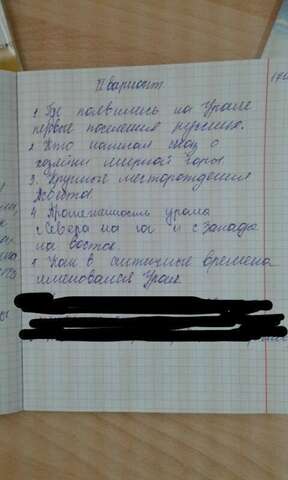 II вариант
1. Где появились на Урале
первые поселения русских.
2. Кто написал сказ о
хозяйки медной горы
3. Крупные месторождения
4. Протяженность урала
с Севера на юг и с Запада
на восток.
5. Как в античные времена
именовался Урал.